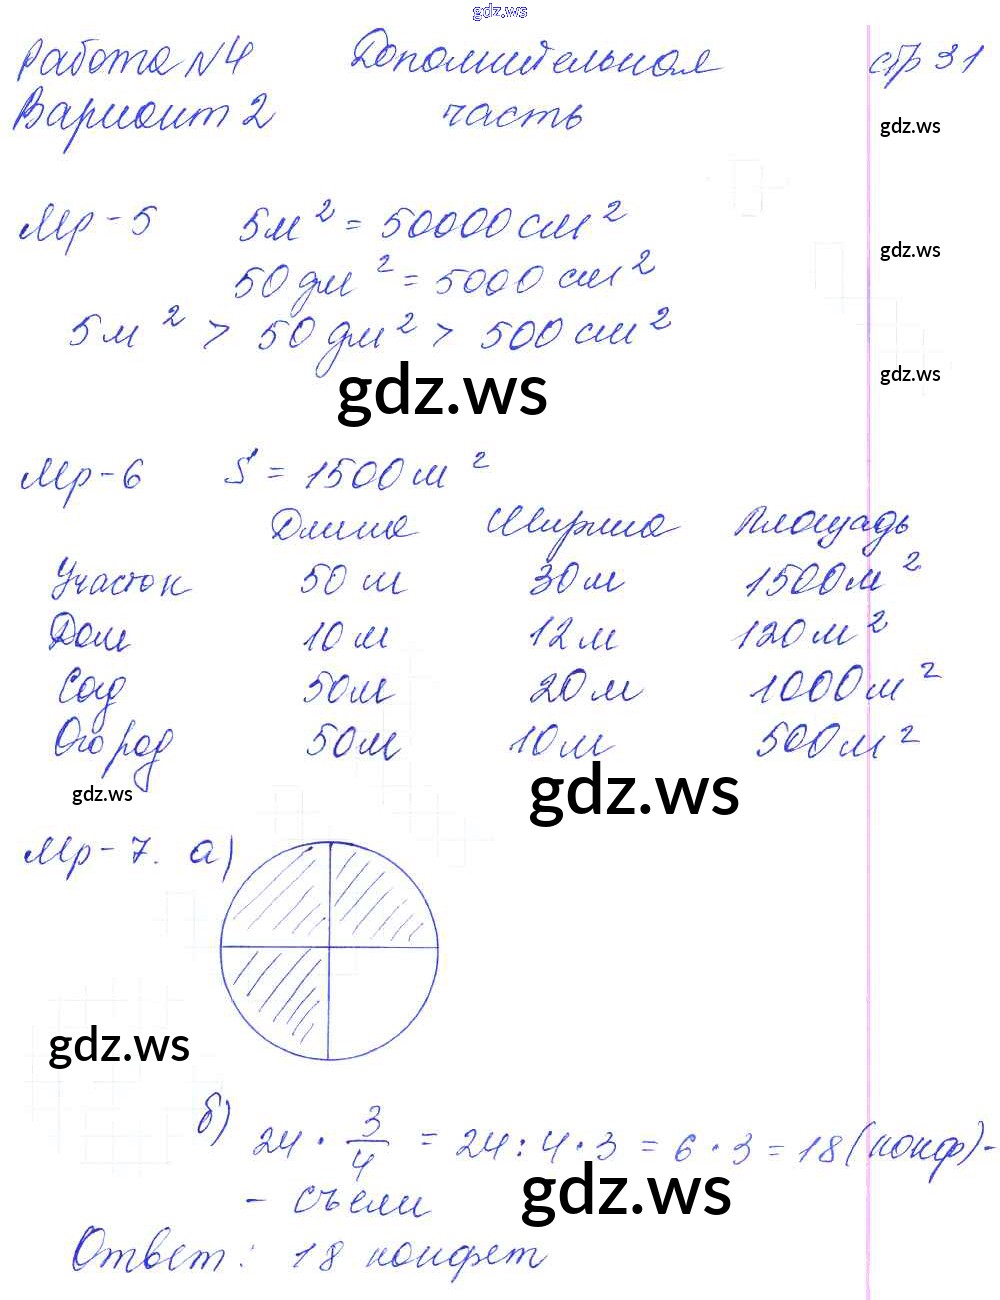 gdz.ws
Работа №4 Дополнительная стр 31
Вариант 2 часть
gdz.ws
Мр-5 5м² = 50000 см²
gdz.ws
50 дм² = 5000 см²
5м² > 50 дм² > 500 см²
gdz.ws
gdz.ws
Мр-6 S = 1500 м²
Длина Ширина Площадь
Участок 50 м 30 м 1500 м²
Дом 10 м 12 м 120 м²
Сад 50 м 20 м 1000 м²
Огород 50 м 10 м 500 м²
gdz.ws
gdz.ws
Мр-7. а)
gdz.ws
б) 24 · 3/4 = 24 : 4 · 3 = 6 · 3 = 18 (конф) -
- съели
gdz.ws
Ответ: 18 конфет